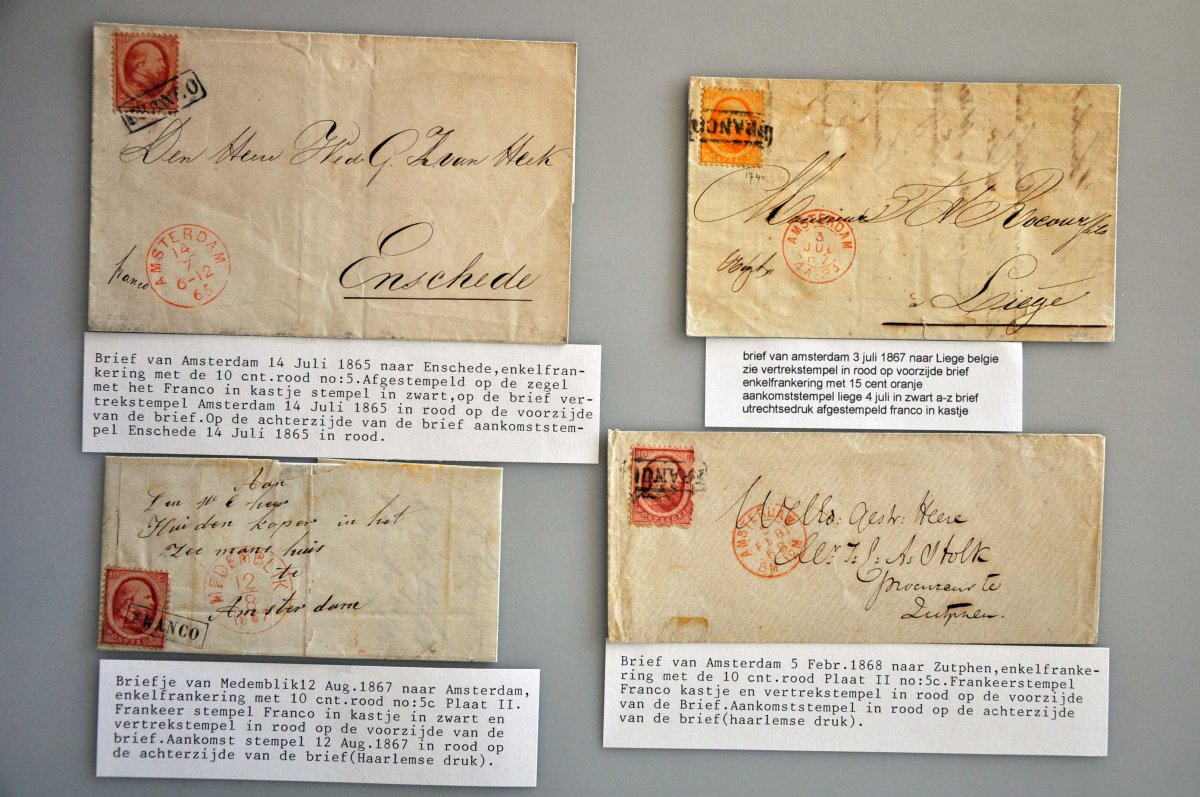 FRANCO
Den Heere Wed G J van Heek
Enschede
franco
AMSTERDAM
14
7
6-12
65
Brief van Amsterdam 14 Juli 1865 naar Enschede,enkelfran-
kering met de 10 cnt.rood no:5.Afgestempeld op de zegel
met het Franco in kastje stempel in zwart,op de brief ver-
trekstempel Amsterdam 14 Juli 1865 in rood op de voorzijde
van de brief.Op de achterzijde van de brief aankomststem-
pel Enschede 14 Juli 1865 in rood.
FRANCO
Monsieur
Rocour fils
à Liège
AMSTERDAM
3
JUL
67
brief van amsterdam 3 juli 1867 naar Liege belgie
zie vertrekstempel in rood op voorzijde brief
enkelfrankering met 15 cent oranje
aankomststempel liege 4 juli in zwart a-z brief
utrechtsedruk afgestempeld franco in kastje
Aan
Den
heer
Huidenkoper in het
Zeemanshuis
te
Amsterdam
MEDEMBLIK
12
POSTZEGEL
FRANCO
Briefje van Medemblik12 Aug.1867 naar Amsterdam,
enkelfrankering met 10 cnt.rood no:5c Plaat II.
Frankeer stempel Franco in kastje in zwart en
vertrekstempel in rood op de voorzijde van de
brief.Aankomst stempel 12 Aug.1867 in rood op
de achterzijde van de brief(Haarlemse druk).
POSTZEGEL
Gestr: Heere
Stolk
procureur te
Zutphen.
AMSTERDAM
FEB
68
Brief van Amsterdam 5 Febr.1868 naar Zutphen,enkelfranke-
ring met de 10 cnt.rood Plaat II no:5c.Frankeerstempel
Franco kastje en vertrekstempel in rood op de voorzijde
van de Brief.Aankomststempel in rood op de achterzijde
van de brief(haarlemse druk).